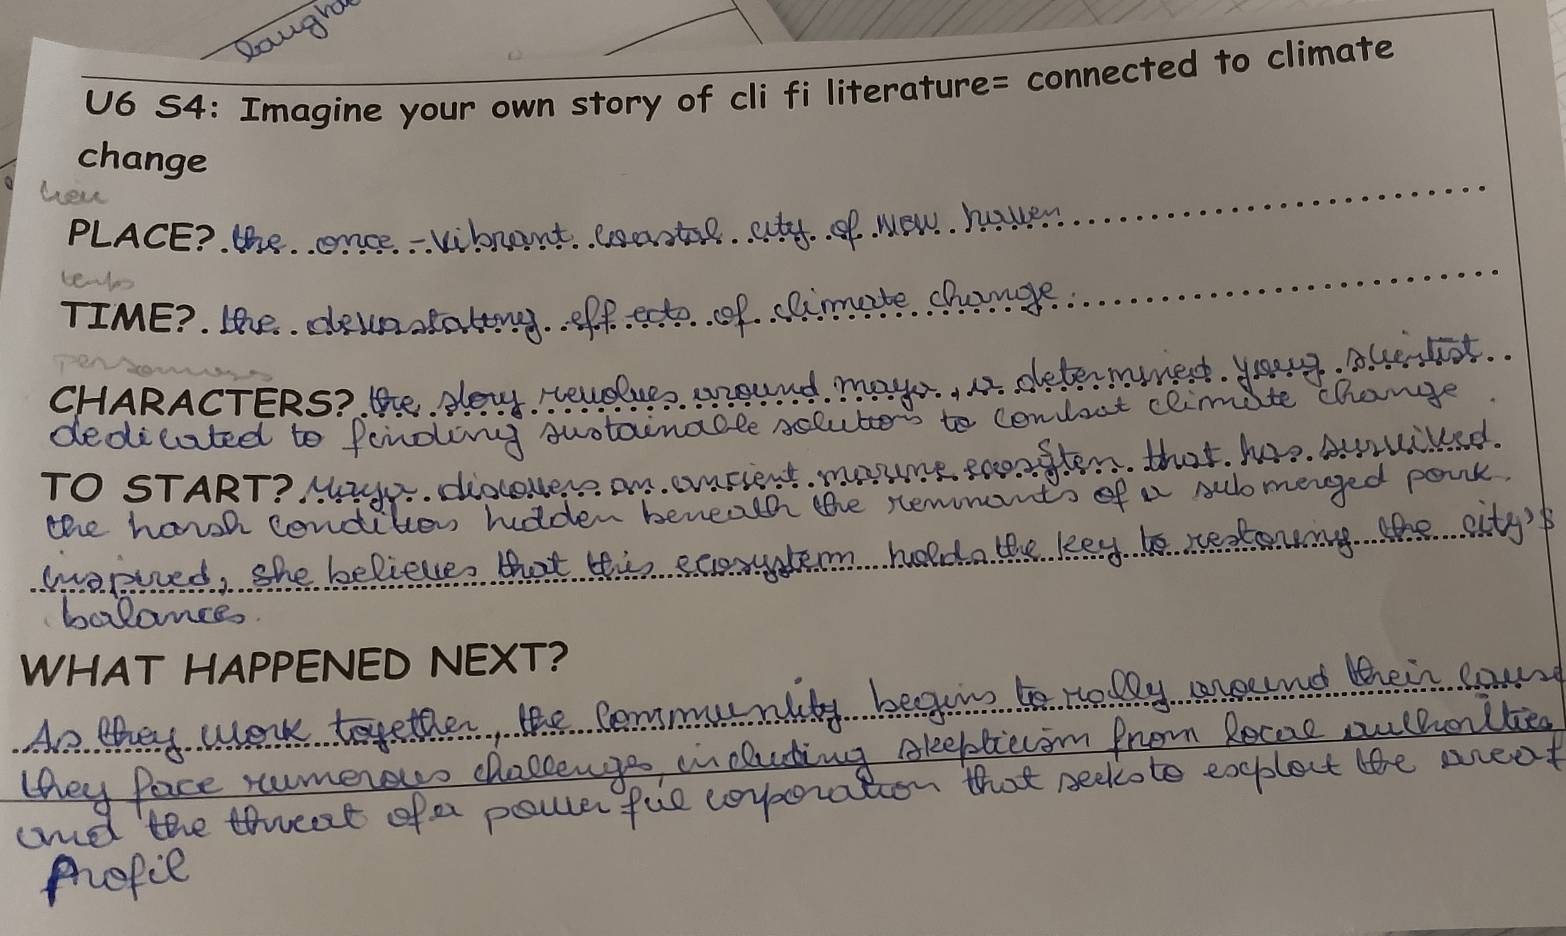 laugh
U6 S4: Imagine your own story of cli fi literature= connected to climate
change
lieu
PLACE? the once-vibrant coastal city of New haven
temps
TIME? the devastating effects of climate change
personnages
CHARACTERS? the story revolves around maya, a determined young scientist
dedicated to finding sustainable solutions to combat climate change.
TO START? Maya discovers an ancient marine ecosystem that has survived.
the harsh condition hidden beneath the remnants of a submerged park.
inspired, she believes that this ecosystem holds the key to restoring the city's
balances.
WHAT HAPPENED NEXT?
As they work together, the community begins to rally around their cause
they face numerous challenges, including skepticism from local authorities
and the threat of a powerful corporation that seeks to exploit the area f
Profil